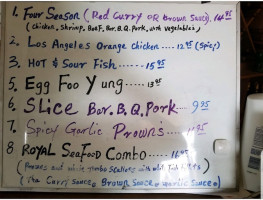 1. Four Season (Red Curry OR Brown Sauce) 14 95
(chicken, Shrimp, Beef, Bar.B.Q. Pork, with vegetables)
2. Los Angeles Orange Chicken .... 12 95 (Spicy)
3. HOT & Sour Fish ------ 15 95
5. Egg Foo Yung ----- 13 95
6. SLICE Bar.B.Q. Pork.... 9 95
7. Spicy Garlic Prawns
8 ROYAL SeaFood Combo ----- 16 95
(Prawns and white Jumbo Scallops with
(The Curry Sauce, Brown Sauce or Garlic Sauce)